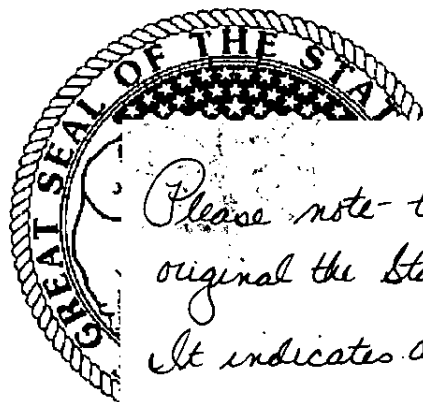 GREAT SEAL OF THE STAT
Please note - t
original the Sta
It indicates a